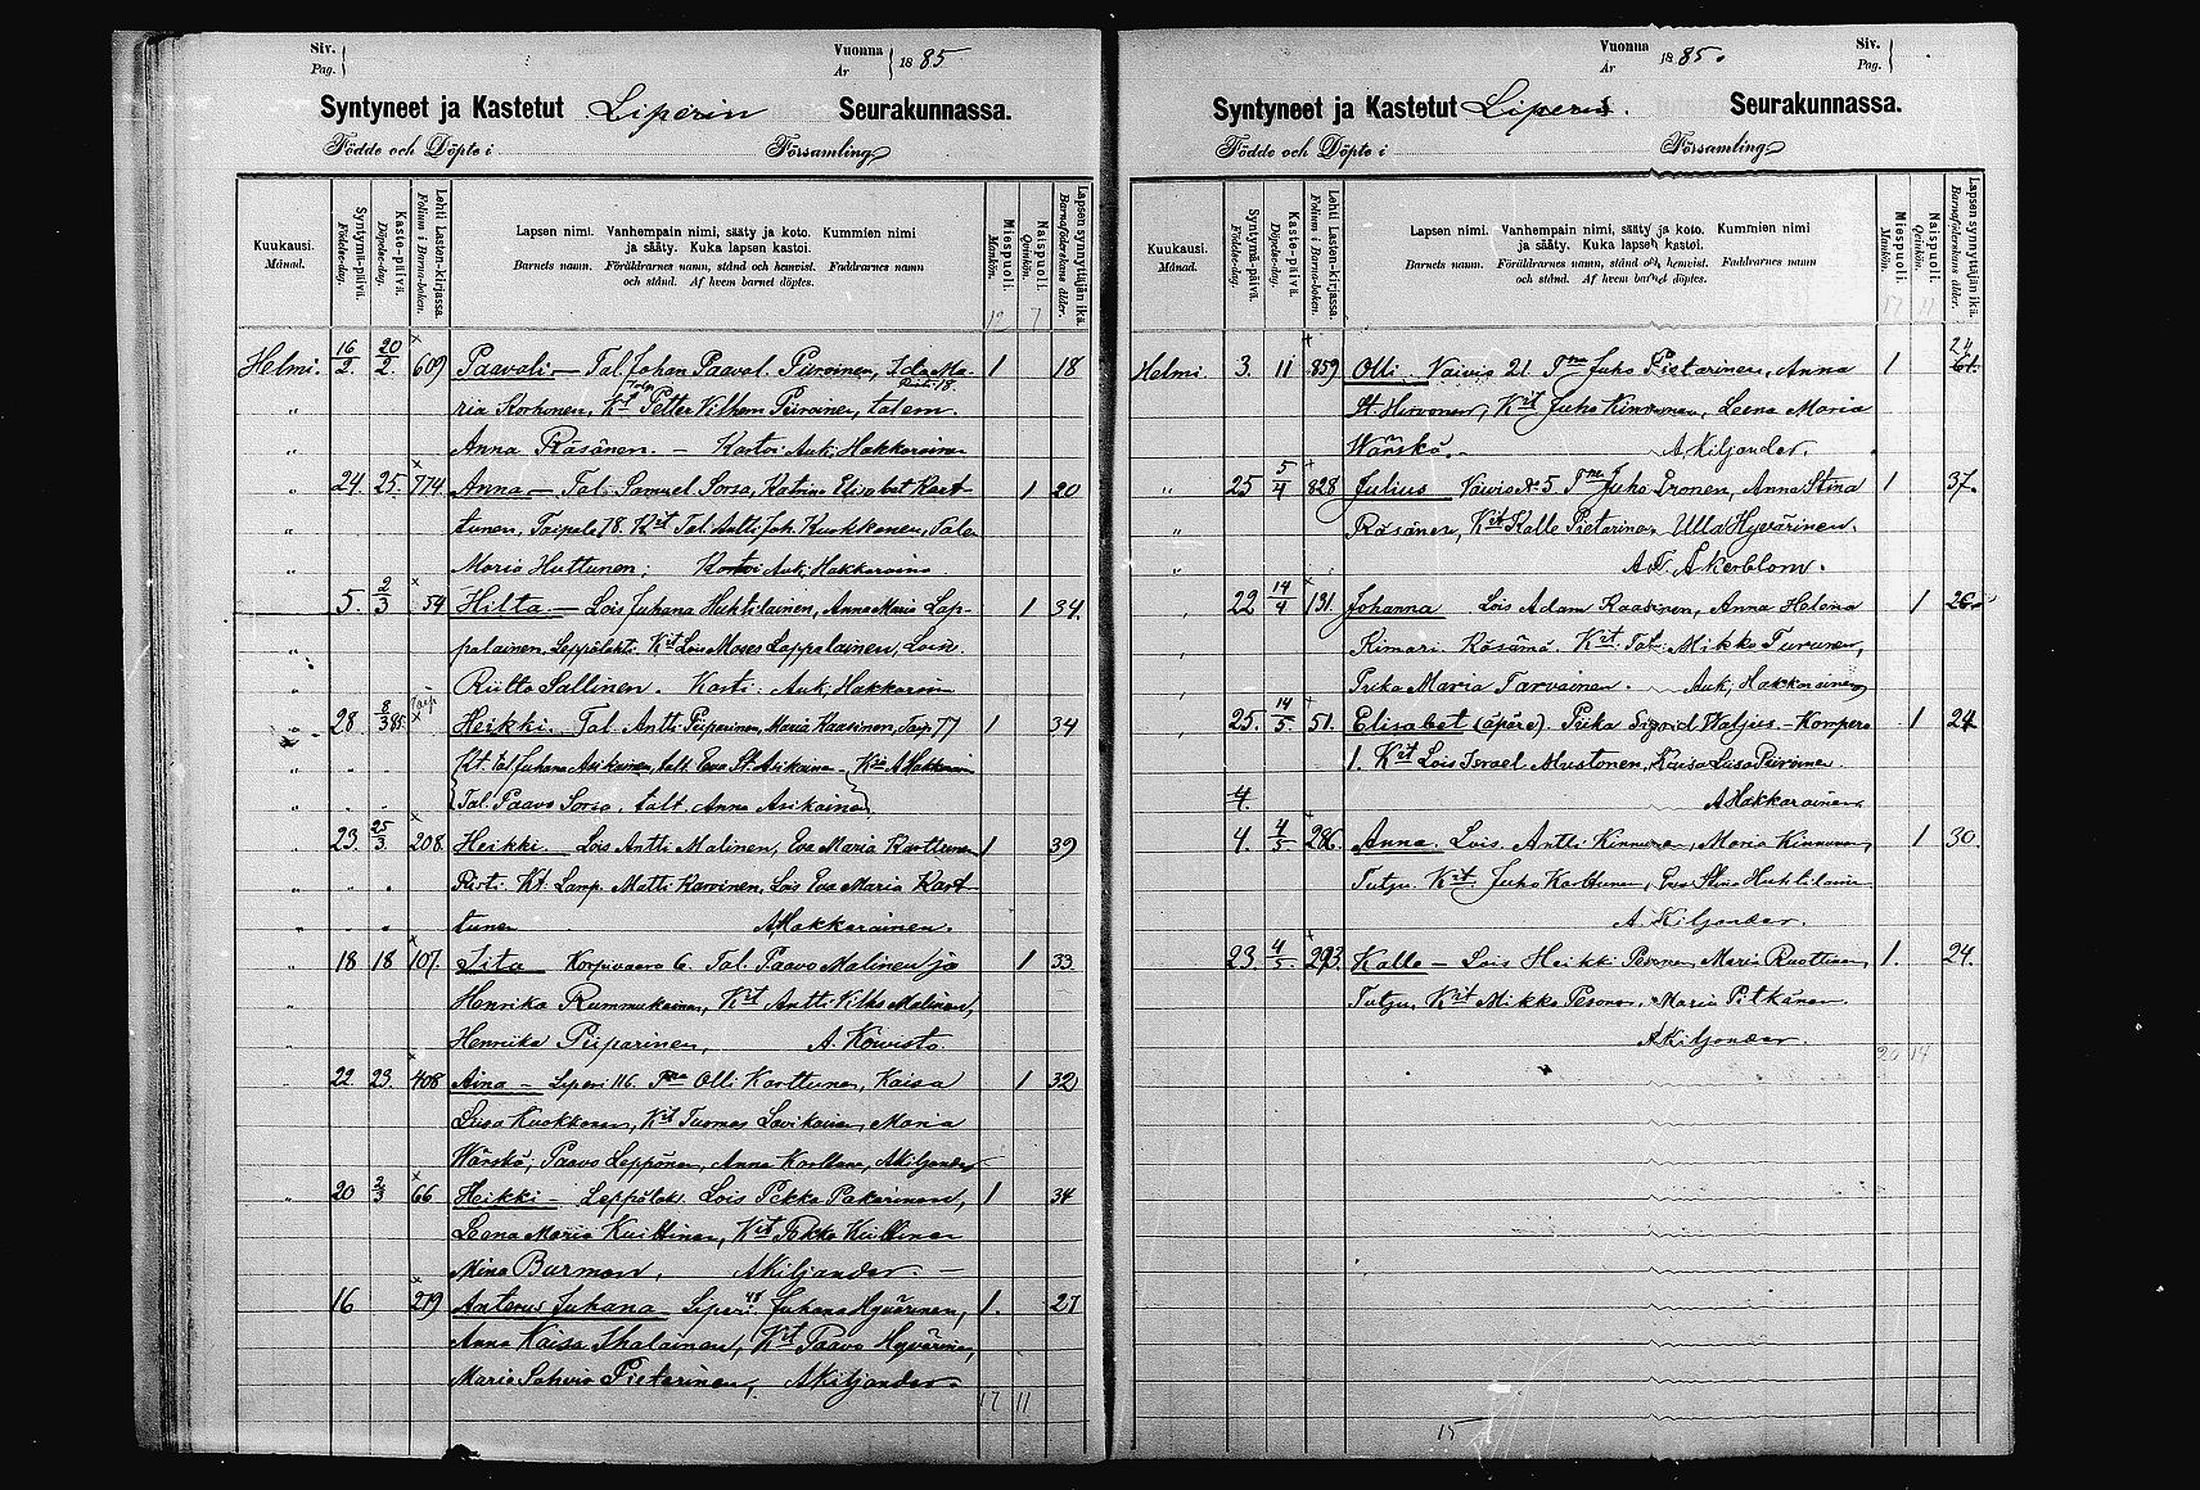 Siv.
Pag.
Vuonna
År
1885
Syntyneet ja Kastetut Liperin Seurakunnassa.
Födde och Döpte i Församling
Kuukausi.
Månad.
Syntymä-päivä.
Födelse-dag.
Kaste-päivä.
Döpelse-dag.
Lehti Lasten-kirjassa.
Folium i Barna-boken.
Lapsen nimi. Vanhempain nimi, sääty ja koto. Kummien nimi
ja sääty. Kuka lapsen kastoi.
Barnets namn. Föräldrarnes namn, stånd och hemvist. Faddrarnes namn
och stånd. Af hvem barnet döptes.
Miespuoli.
Mankön.
Naispuoli.
Qvinkön.
Lapsen synnyttäjän ikä.
Barnaföderskans ålder.
12 7
Helmi. 16/2. 20/2. 609 Paavali — Tal. Johan Paaval. Piiroinen, Ida Ma- 1 18
ria Korhonen, Kt Petter Vilhem Piiroinen, talem.
Anna Räsänen. — Kastoi Auk; Hakkarainen
" 24. 25. 774 Anna — Tal. Samuel Sorsa, Katrina Elisabet Kart- 1 20
tunen, Taipale 78. Kit Tal. Antti Joh. Kuokkanen, Talen
Maria Huttunen; Kastoi Auk; Hakkaraine
5. 2/3 54 Hilta — Lois Juhana Huhtilainen, Anna Maria Lap- 1 34.
palainen. Leppälahti. Kit Lois Moses Lappalainen, Lois.
Riitta Sallinen. Kasti: Auk; Hakkarain
" 28. 8/3 85. Taip Heikki. Tal. Antti Piiparinen, Maria Kaasinen, Taip. 77 1 34
Kt. tal. Juhana Asikainen, talt. Eva St. Asikaine — A Hakkarain
Tal. Paavo Sorsa, talt. Anna Asikainen
" 23. 25/3. 208. Heikki. Lois Antti Malinen, Eva Maria Karttunen 1 39
Risti. Kt: Lamp. Matti Karvinen, Lois Eva Maria Kart-
tunen A, Hakkarainen.
" 18 18 107. Iita Korpivaara 6. Tal. Paavo Malinen ja 1 33
Henrika Rummukainen, Kit Antti Vilho Malinen,
Henriika Piiparinen, A. Koivisto.
" 22. 23. 408 Aina — Liperi 116. Olli Karttunen, Kaisa 1 32
Liisa Kuokkanen, Kit Tuomas Lavikainen, Maria
Wärskä; Paavo Leppänen, Anna Karttune, AKiljander
" 20 2/3 66 Heikki — Leppälah. Lois Pekka Pakarinen, 1 34
Leena Maria Kuittinen, Kit Pekka Kuittinen
Mina Burman, AKiljander. —
16 279 Anterus Juhana — Liperi 48 Juhana Hyvärinen, 1. 27
Anna Kaisa Ihalainen, Kit Paavo Hyvärine,
Maria Sohvia Pietarinen, AKiljander.
17 11
Vuonna
År
1885.
Siv.
Pag.
Syntyneet ja Kastetut Liperi. Seurakunnassa.
Födde och Döpte i Församling
Kuukausi.
Månad.
Syntymä-päivä.
Födelse-dag.
Kaste-päivä.
Döpelse-dag.
Lehti Lasten-kirjassa.
Folium i Barna-boken.
Lapsen nimi. Vanhempain nimi, sääty ja koto. Kummien nimi
ja sääty. Kuka lapsen kastoi.
Barnets namn. Föräldrarnes namn, stånd och hemvist. Faddrarnes namn
och stånd. Af hvem barnet döptes.
Miespuoli.
Mankön.
Naispuoli.
Qvinkön.
Lapsen synnyttäjän ikä.
Barnaföderskans ålder.
17 11
Helmi. 3. 11 859 Olli. Vaivio 21. Juho Pietarinen, Anna 1 24
St. Hirvonen, Kit Juho Kinnunen, Leena Maria
Wärskä. — A. Kiljander.
" 25 5/4 828 Julius Vaivio No 5 Juho Eronen, Anna Stina 1 37.
Räsänen, Kit Kalle Pietarinen Ulla Hyvärinen.
A. F. Åkerblom.
22 14/4 131. Johanna Lois Adam Kaasinen, Anna Helena 1 26
Kimari. Käsämä. Kit. Tal. Mikko Turunen,
Prika Maria Tarvainen. Auk; Hakkarainen
25. 14/5. 51. Elisabet (äpäre). Piika Sigrid Waljus — Kompero 1 24
1. Kit Lois Israel Mustonen, Kaisa Liisa Piiroinen
4. A Hakkarainen
4. 4/5 286. Anna. Lois. Antti Kinnunen, Maria Kinnunen, 1 30.
Tutju. Kit. Juho Karttunen, Eva Stina Huhtilaine
A. Kiljander.
23. 4/5. 293. Kalle — Lois Heikki Pesonen, Maria Ruottinen, 1. 24.
Tutju, Kit Mikko Pesonen, Maria Pitkänen.
AKiljander.
20 14
15